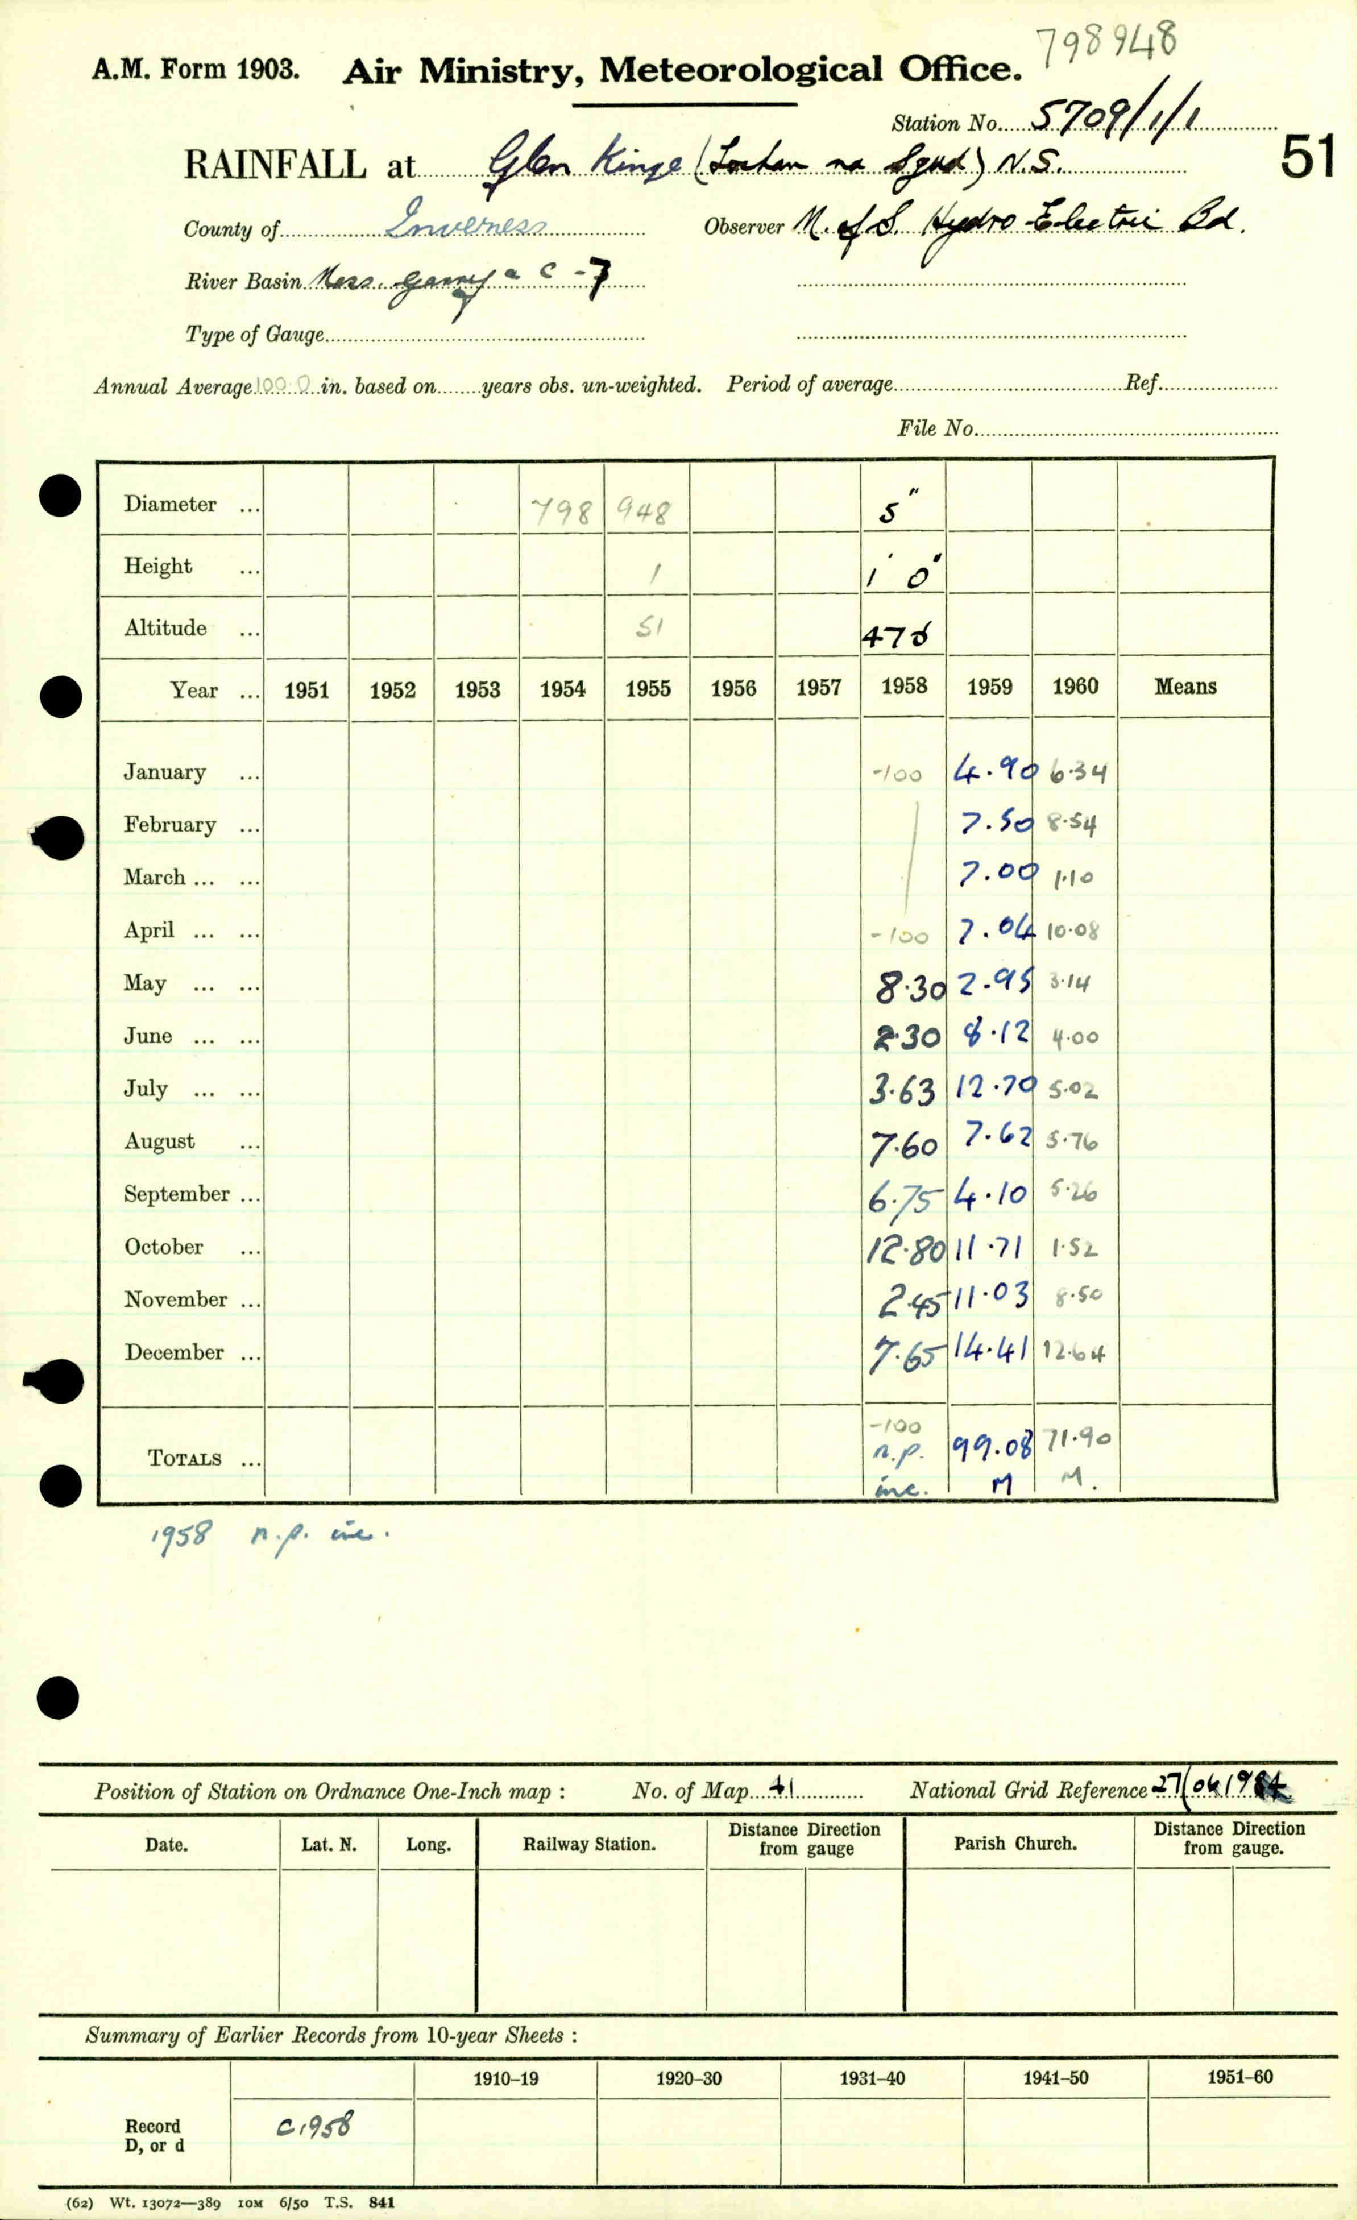 798948
A.M. Form 1903. Air Ministry, Meteorological Office.
Station No. 5709/1/1
51
RAINFALL at Glen Kinge (Lochan na Sgud) N.S.
County of Inverness Observer N. of S. Hydro-Electric Bd.
River Basin Ness. Garry a C - 7
Type of Gauge
Annual Average 100.0 in. based on years obs. un-weighted. Period of average Ref.
File No.
Diameter ... 798 948 5"
Height ... 1 1' 0"
Altitude ... 51 470
Year ... 1951 1952 1953 1954 1955 1956 1957 1958 1959 1960 Means
January ... -100 4.90 6.34
February ... 7.50 8.54
March ... ... 7.00 1.10
April ... ... -100 7.04 10.08
May ... ... 8.30 2.95 3.14
June ... ... 2.30 8.12 4.00
July ... ... 3.63 12.70 5.02
August ... 7.60 7.62 5.76
September ... 6.75 4.10 5.26
October ... 12.80 11.71 1.52
November ... 2.45 11.03 8.50
December ... 7.65 14.41 12.64
TOTALS ... -100 n.p. inc. 99.08 M 71.90 M.
1958 n.p. inc.
Position of Station on Ordnance One-Inch map : No. of Map 41 National Grid Reference 27/
Date. Lat. N. Long. Railway Station. Distance from Direction gauge Parish Church. Distance from Direction gauge.
Summary of Earlier Records from 10-year Sheets :
1910–19 1920–30 1931–40 1941–50 1951–60
Record D, or d C1958
(62) Wt. 13072—389 10M 6/50 T.S. 841